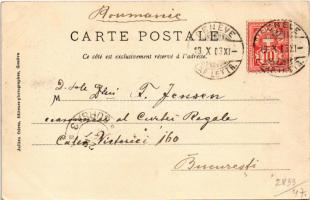 Roumanie
CARTE POSTALE
Ce côté est exclusivement réservé à l'adresse.
GENÈVE
13. X 03 XI-
EXP. LETTR.
10
M
D-sale Dlui F. Jensen
al Curtei Regale
Calea Victoriei 160
Bucuresti
Jullien frères, Editeurs-photographes, Genève
47.